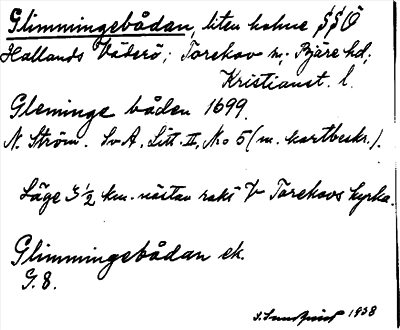 Glimmingebådan, liten holme SSÖ
Hallands Väderö; Torekov sn; Bjäre hd;
Kristianst. l.
Gleminge båden 1699.
N. Ström. SvA, Litt. II, No 5 (m. kartbeskr.).
Läge 3½ km. nästan rakt V Torekovs kyrka.
Glimmingebådan ek.
G.8.
1938